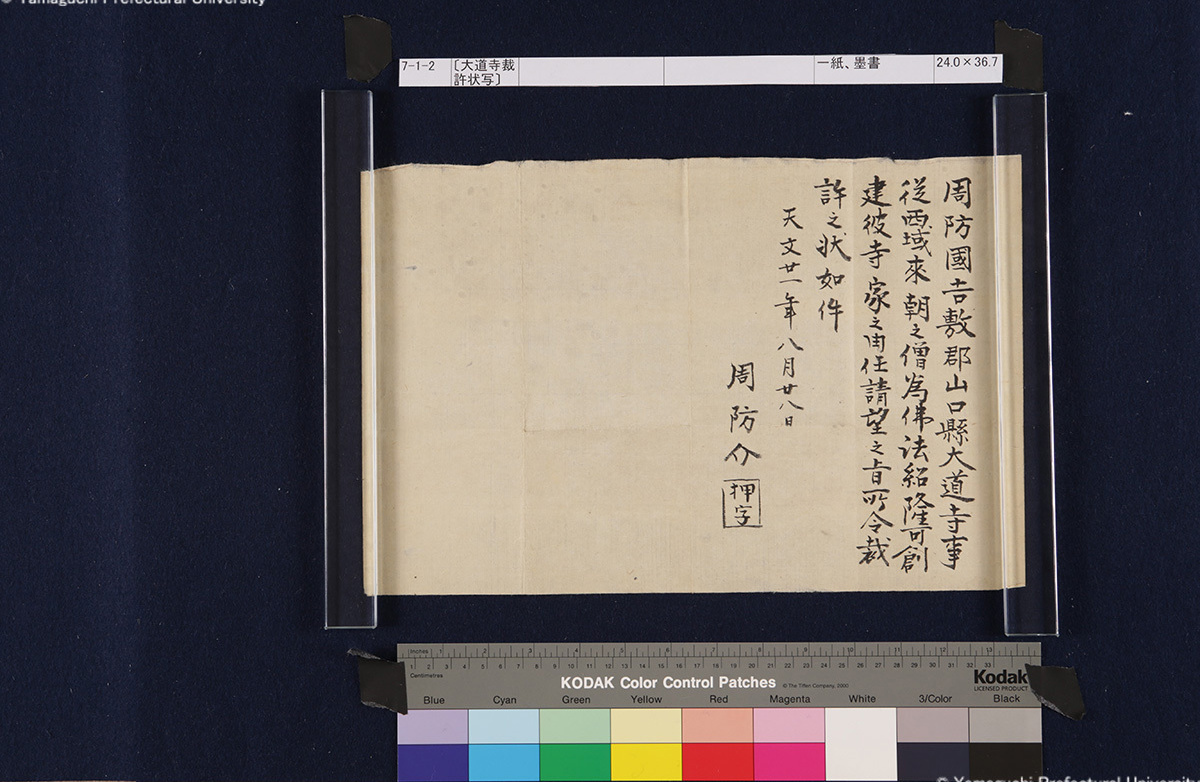 © Yamaguchi Prefectural University
7-1-2
〔大道寺裁
許状写〕
一紙、墨書
24.0×36.7
周防國吉敷郡山口縣大道寺事
従西域來朝之僧為佛法紹隆可創
建彼寺家之由任請望之旨所令裁
許之状如件
天文廿一年八月廿八日
周防介
押字
Inches 1 2 3 4 5 6 7 8 9 10 11 12 13
1 2 3 4 5 6 7 8 9 10 11 12 13 14 15 16 17 18 19 20 21 22 23 24 25 26 27 28 29 30 31 32 33
Centimetres
KODAK Color Control Patches
© The Tiffen Company, 2000
Kodak
LICENSED PRODUCT
Blue Cyan Green Yellow Red Magenta White 3/Color Black
© Yamaguchi Prefectural University